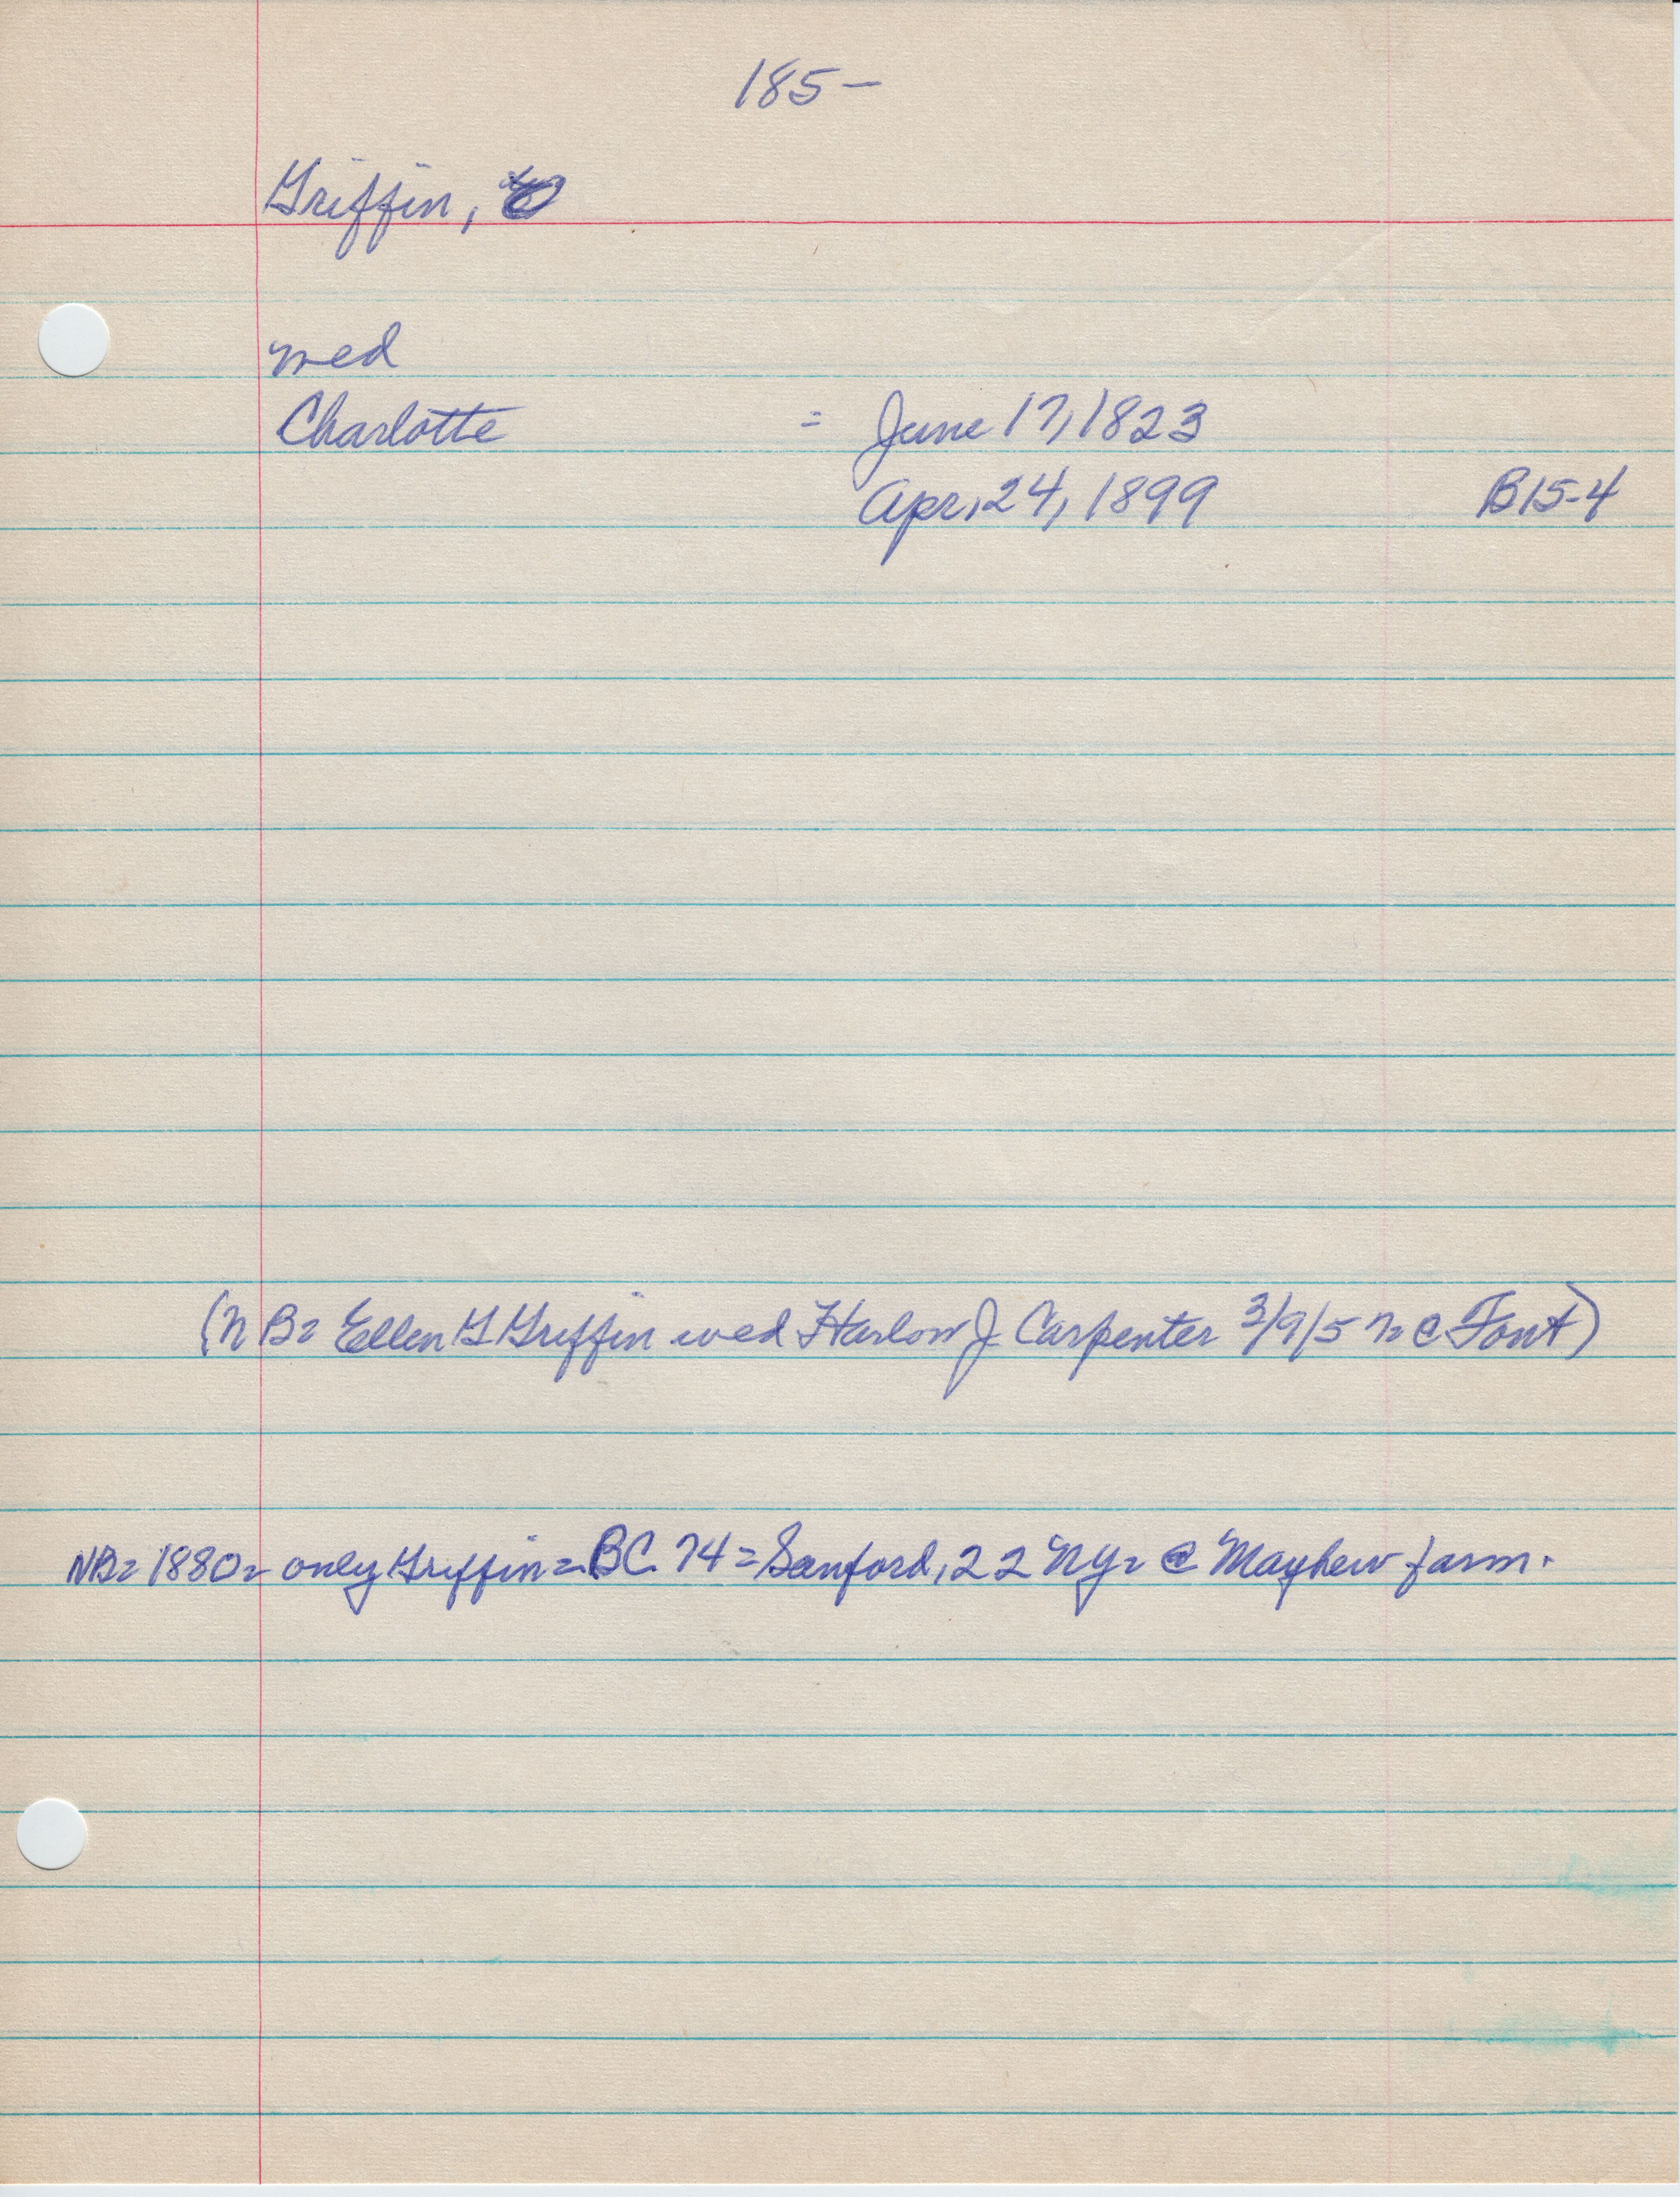 185-
Griffin,
wed
Charlotte = June 17, 1823
Apr. 24, 1899 B15-4
(NB= Ellen G Griffin wed Harlow J Carpenter 3/9/57= @ Font)
NB= 1880= only Griffin= BC 74= Sanford, 22 NY= @ Mayhew farm.